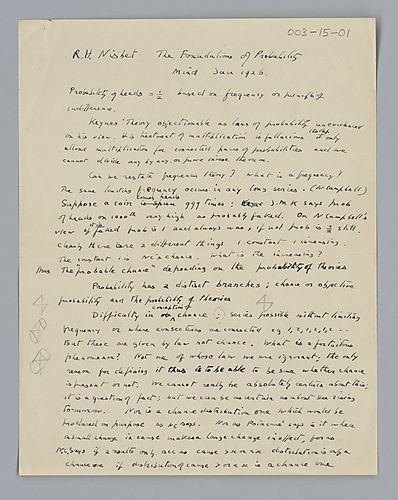 003-15-01
R.H. Nisbet The Foundations of Probability
Mind Jan 1926.
Probability of heads = ½ based on frequency or principle of
indifference.
Keynes' Theory objectionable as laws of probability unconvincing
on his view. His treatment of multiplication is fallacious it only
allows multiplication for connected pairs of probabilities and we
cannot divide any by any, or prove inverse theorem.
Can we restate frequency theory? What is a frequency?
The same limiting frequency occurs in any long series. (N Campbell)
Suppose a coin is spun coming heads 999 times; J.M.K says prob
of heads on 1000th very high as probably faked. On N Campbell's
view if it is faked prob is 1 and always was, if not prob is ½ still.
Clearly there are 2 different things 1 constant 1 increasing.
The constant 1 is NC's chance. What is the increasing?
Thus The probable chance depending on the probability of theories
Probability has 2 distinct branches; chance or objective
probability and the probability of theories
Difficulty in conception of chance: series possible without limiting
frequency or where consecutives are connected eg 1,2,1,2,1,2 ...
But these are given by law not chance. What is a fortuitous
phenomenon? Not one of whose law we are ignorant; the only
reason for defining it thus is to be able to be sure whether chance
is present or not. We cannot really be absolutely certain about this;
it is a question of fact; but we can be as certain as about sun rising
tomorrow. Nor is a chance distribution one which would be
produced on purpose as NC says. Nor as Poincaré says is it where
a small change in cause makes a large change in effect, for as
NC says if 2 results only, all no cause distribution is only a
chance one if distribution of cause is a chance one